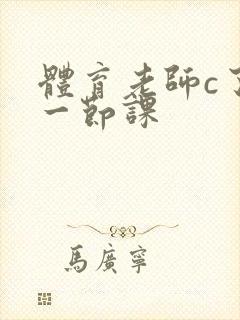 體育老師c了
一節課
馬廣寧